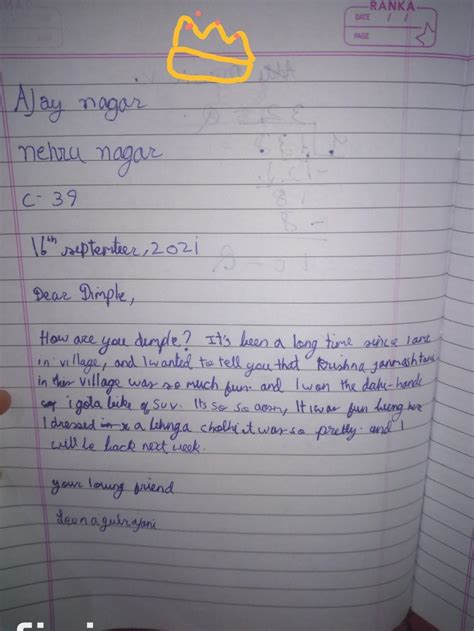 RANKA
DATE / /
PAGE
AJay nagar
nehru nagar
C-39
16th september, 2021
Dear Dimple,
How are you dimple? It's been a long time since I are
in village, and I wanted to tell you that Krishna janmashtami
in this village was so much fun. and I won the dahi-handi
i got a bike of suv. Its so so aosm, It was fun being here
I dressed in a lehnga cholhi it was so pretty. and I
will be back next week.
your loving friend